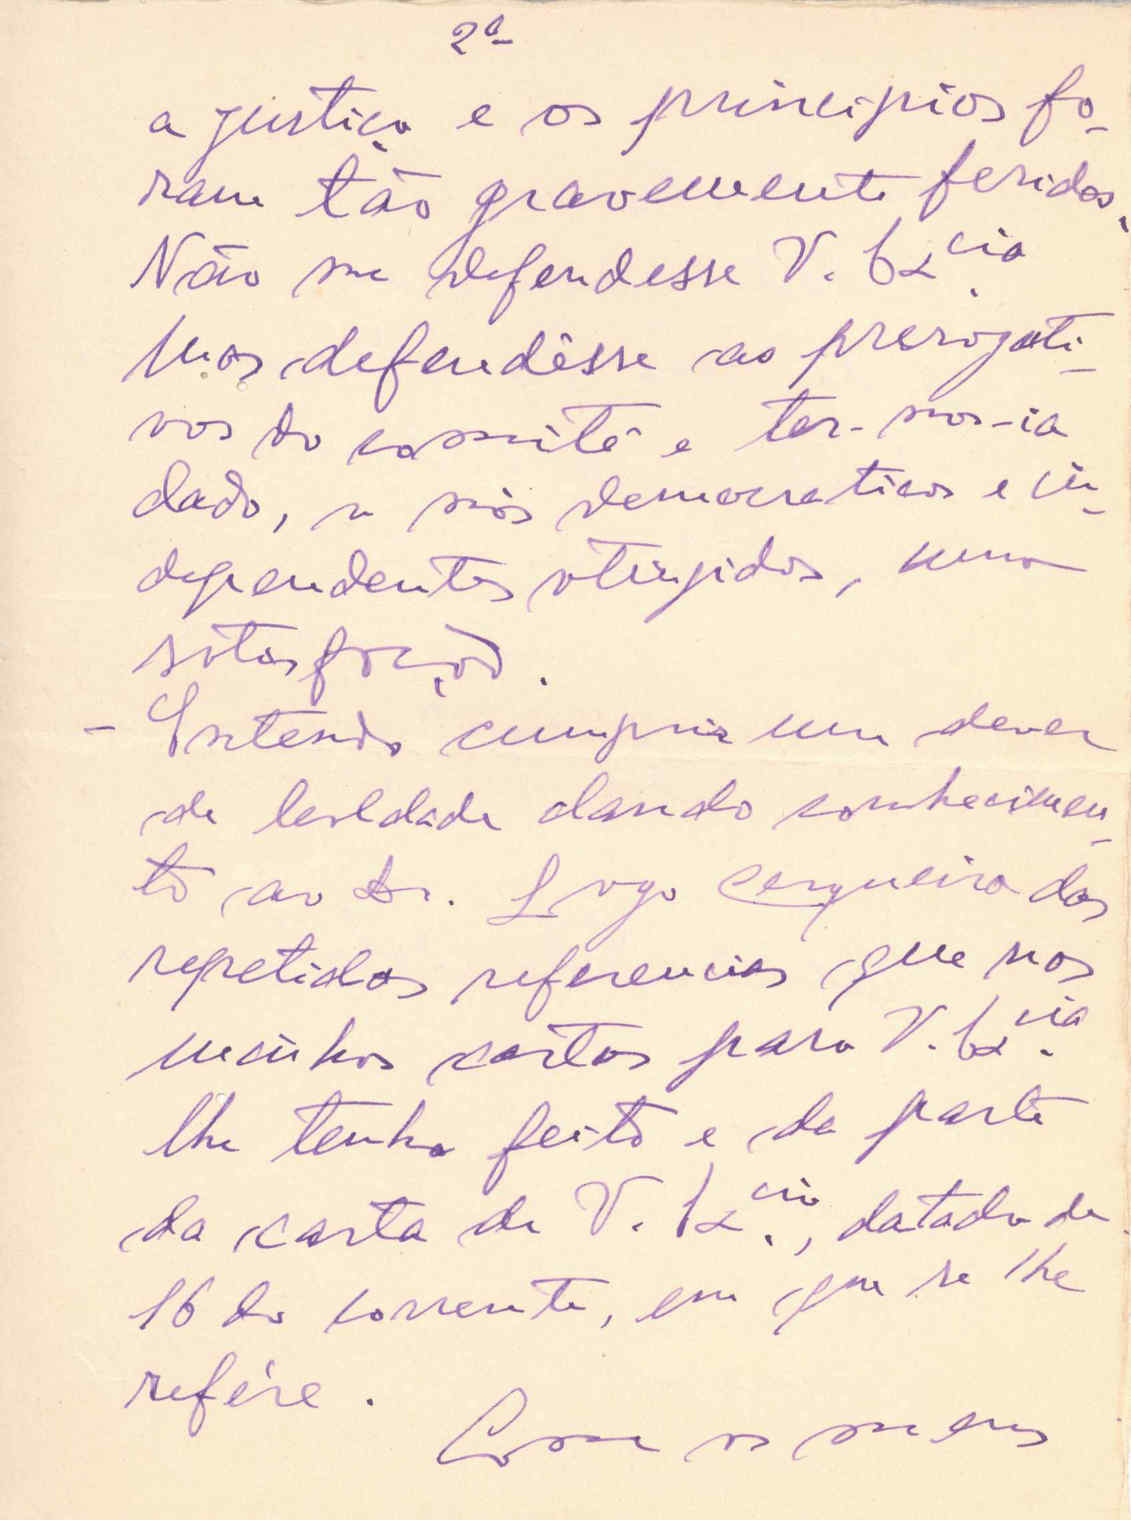 2ª
a justiça e os principios fo-
ram tão gravemente feridos.
Não me defendesse V. Ex.cia
Mas defendêsse as prerogati-
vas do comité e ter-nos-ia
dado, a nós democraticos e in-
dependentes atingidos, uma
satisfação.
- Entendo cumprir um dever
de lealdade dando conhecimen-
to ao Dr. Lago Cerqueira das
repetidas referencias que nas
minhas cartas para V. Ex.cia
lhe tenho feito e da parte
da carta de V. Ex.cia, datada de
16 do corrente, em que se lhe
refére.
Com os meus